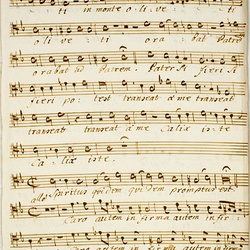 ti in monte o li ve ti
oli ve ti ora bat Patrem
orabat ad Patrem. Pater si fieri si
fieri po: test transeat a me transeat
transeat a me Calix iste
Ca lix iste.
allo Spiritus qui dem qui dem promptus est
Caro autem in firma autem in fir:
autem in firma